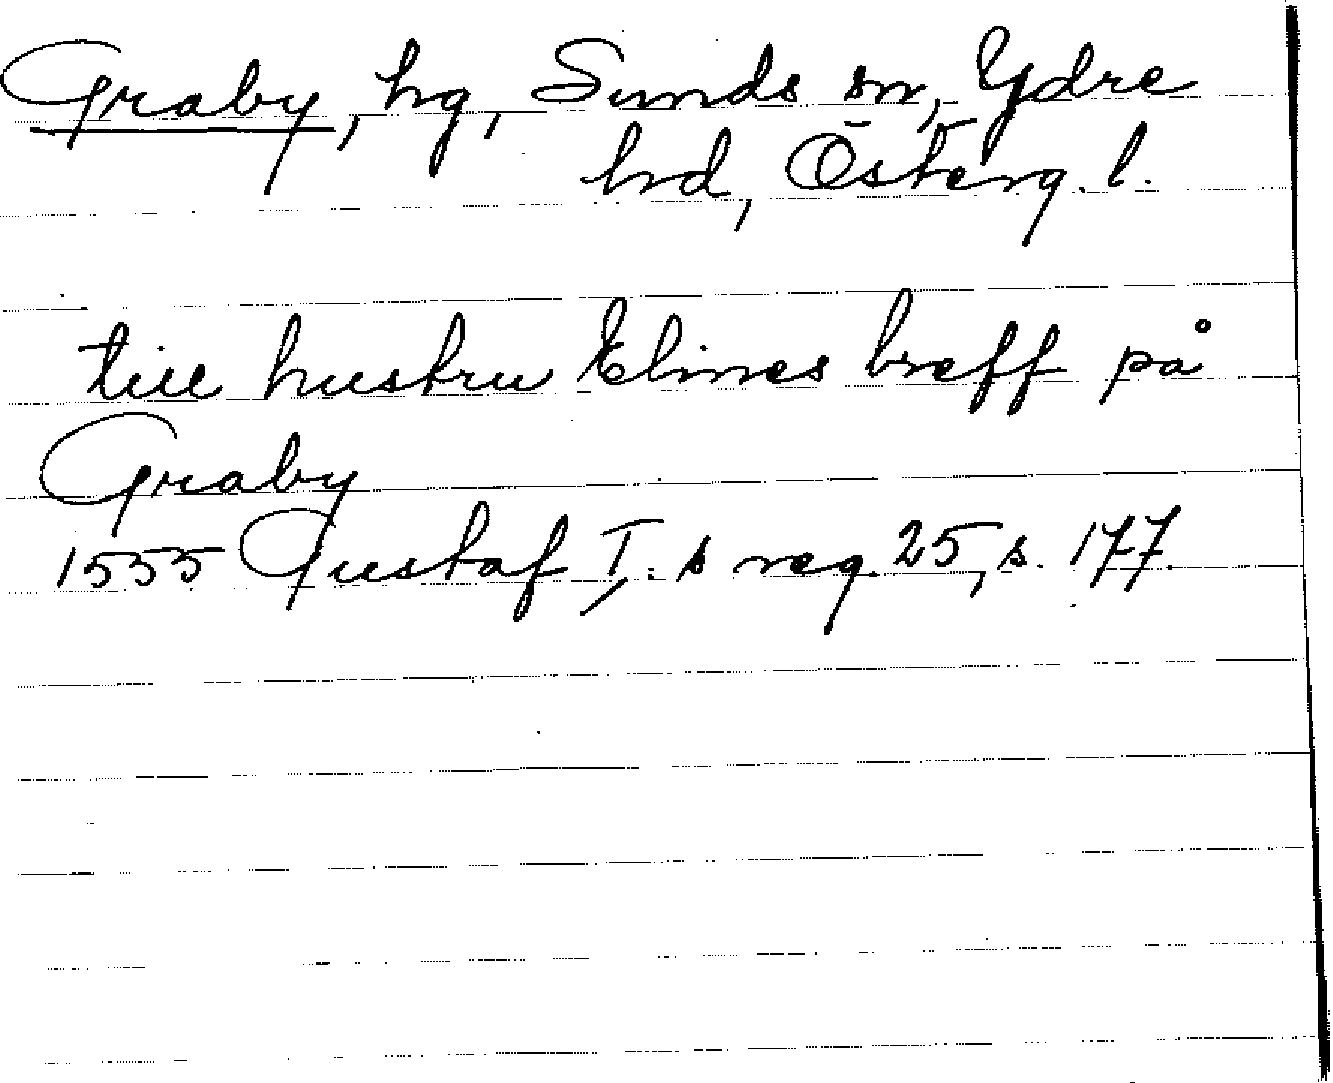 Graby, hg, Sunds sn, Ydre
hd, Österg. l.
till hustru Elines breff på
Graby
1555 Gustaf I:s reg 25, s. 177.